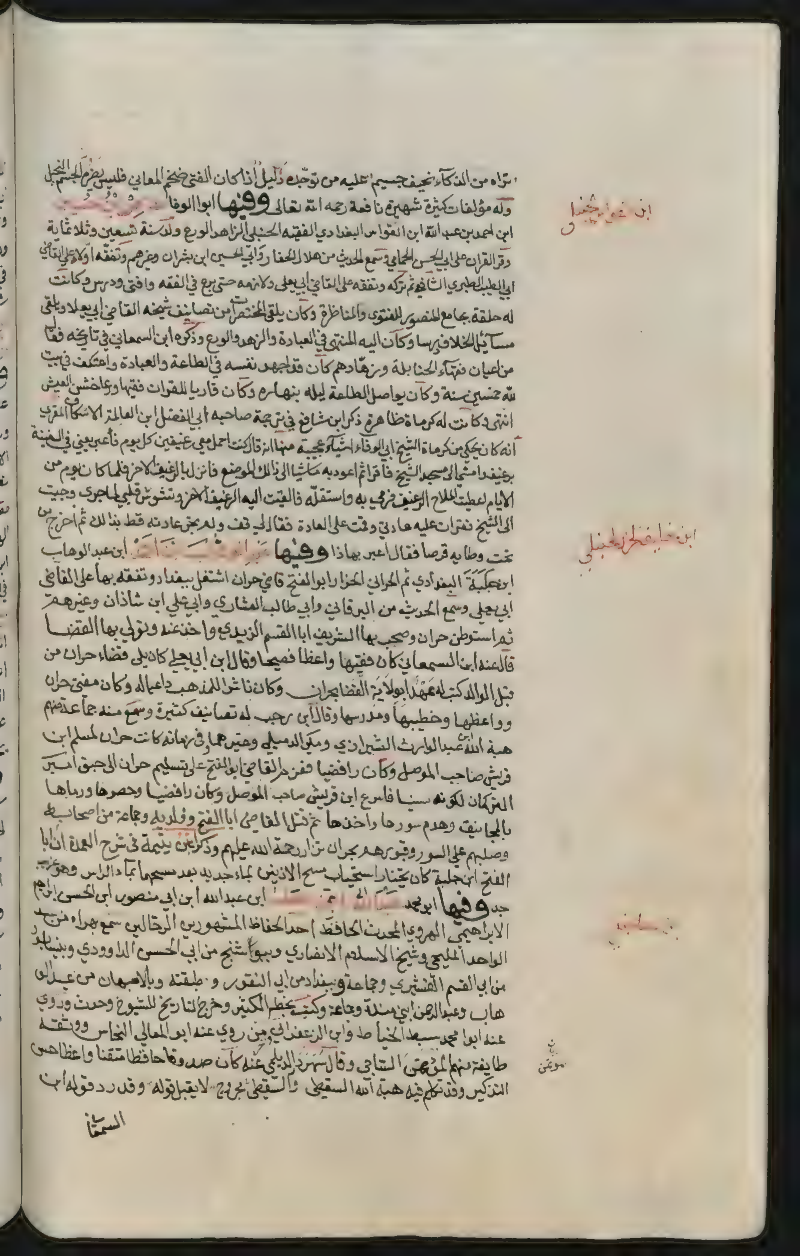 تراه من الذكاء نحيف جسيم عليه من توحده دليل إذا كان الفتى ضخم المعاني فليس يضره الجسم النحيل
وله مؤلفات كثيرة شهيرة نافعة رحمه الله تعالى وفيها ابوالوفا
ابن احمد بن عبد الله ابن القواس البغدادي الفقيه الحنبلي الزاهد الورع ولد سنة تسعين وثلاثماية
وقرا القران على ابي الحسن الحمامي وسمع الحديث من هلال الحفار وابي الحسين ابن بشران وغيرهم وتفقه اولا على القاضي
ابي الطيب الطبري الشافعي ثم تركه وتفقه على القاضي ابي يعلى ولازمه حتى برع في الفقه وافتى ودرس وكانت
له حلقة بجامع المنصور للفتوى والمناظرة وكان يلقي المختصرات من تصانيف شيخه القاضي ابي يعلا ويلقي
مسائل الخلاف درسا وكان اليه المنتهى في العبادة والزهد والورع وذكره ابن السمعاني في تاريخه فقال
من اعيان فقهاء الحنابلة وزهادهم كان قد اجهد نفسه في الطاعة والعبادة واعتكف في بيت
لله خمسين سنة وكان يواصل الطاعة ليله بنهاره وكان قاريا للقران فقيها ورعا خشن العيش
انتهى وكانت له كرمات ظاهرة ذكر ابن شافع في ترجمة صاحبه ابي الفضل ابن العالمة الاسكاف المقري
انه كان يحكي من كرماة الشيخ ابي الوفاء اشياء عجيبة منها انه قال كنت احمل معي رغيفين كل يوم فاعبر يعني في السفينة
برغيف وامشي الى مسجد الشيخ فاقرا ثم اعود به ماشيا الى ذلك الموضع فانزل بالرغيف الاخر فلما كان يوم من
الايام اعطيت الملاح الرغيف فرمي به واستقله فالقيت اليه الرغيف الاخر وتشوش قلبي لما جرى وجيت
الى الشيخ فقرات عليه عادتي وقمت على العادة فقال لي قف ولم تجر عادته قط بذلك ثم اخرج من
تحت وطايه قرصا فقال اعبر بهاذا وفيها ابن عبد الوهاب
ابن جلبة البغدادي ثم الحراني الخزاز ابوالفتح قاضي حران اشتغل ببغداد وتفقه بها على القاضي
ابي يعلي وسمع الحديث من البرقاني وابي طالب العشاري وابي علي ابن شاذان وغيرهم
ثم استوطن حران وصحب بها الشريف ابا القسم الزيدي واخذ عنه وتولي بها القضا
قال عنه ابن السمعاني كان فقيها واعظا فصيحا وقال ابن ابي يعلى كان يلي قضاء حران من
قبل الوالد كتب له عهدا بولاية القضا بحران وكان ناشرا للمذهب داعيا له وكان مفتي حران
وواعظها وخطيبها ومدرسها وقال ابن رجب له تصانيف كثيرة وسمع منه جماعة منهم
هبة الله ابن عبد الوارث الشيرازي ومكي الدميلي وغيرهما وفي زمانه كانت حران لمسلم ابن
قريش صاحب الموصل وكان رافضيا فعزم القاضي ابوالفتح على تسليم حران الى جبق امير
التركمان لكونه سنيا فاسرع ابن قريش صاحب الموصل وكان رافضيا وحصرها ورماها
بالمجانيق وهدم سورها واخذها ثم قتل القاضي ابا الفتح وولديه وجماعة من اصحابه
وصلبهم على السور وقبورهم بحران تزار رحمة الله عليهم وذكر ابن تيمية في شرح العمدة ان ابا
الفتح ابن جلبة كان يختار استحباب مسح الاذنين بماء جديد بعد مسحهما بماء الراس وهو غريب
جدا وفيها ابومحمد ابن عبدالله ابن ابي منصور ابن الحسن ابراهيم
الابراهيمي الهروي المحدث الحافظ احد الحفاظ المشهورين الرحالين سمع بهراه من عبد
الواحد المليحي وشيخ الاسلام الانصاري وببوشنج من ابي الحسن الداوودي وبنيسابور
من ابي القسم القشيري وجماعة وببغداد من ابي النقور وطبقته وباصبهان من عبد الو
هاب وعبد الرحمن ابني مندة وجماعة وكتب بخطه الكثير وخرج التاريخ للشيوخ وحدث وروى
عنه ابوا محمد سبط الخياط وابن الزعفراني ومن روي عنه ابوالمعالي النحاس ووثقه
طايفة منهم المؤتمن الساجي وقال شهردار الديلمي عنه كان صدوقا حافظا متقنا واعظا حسن
التذكير وقد تكلم فيه هبة الله السقطي والسقطي مجروح لا يقبل قوله وقد رد قوله ابن
السمعاني
مؤتمن